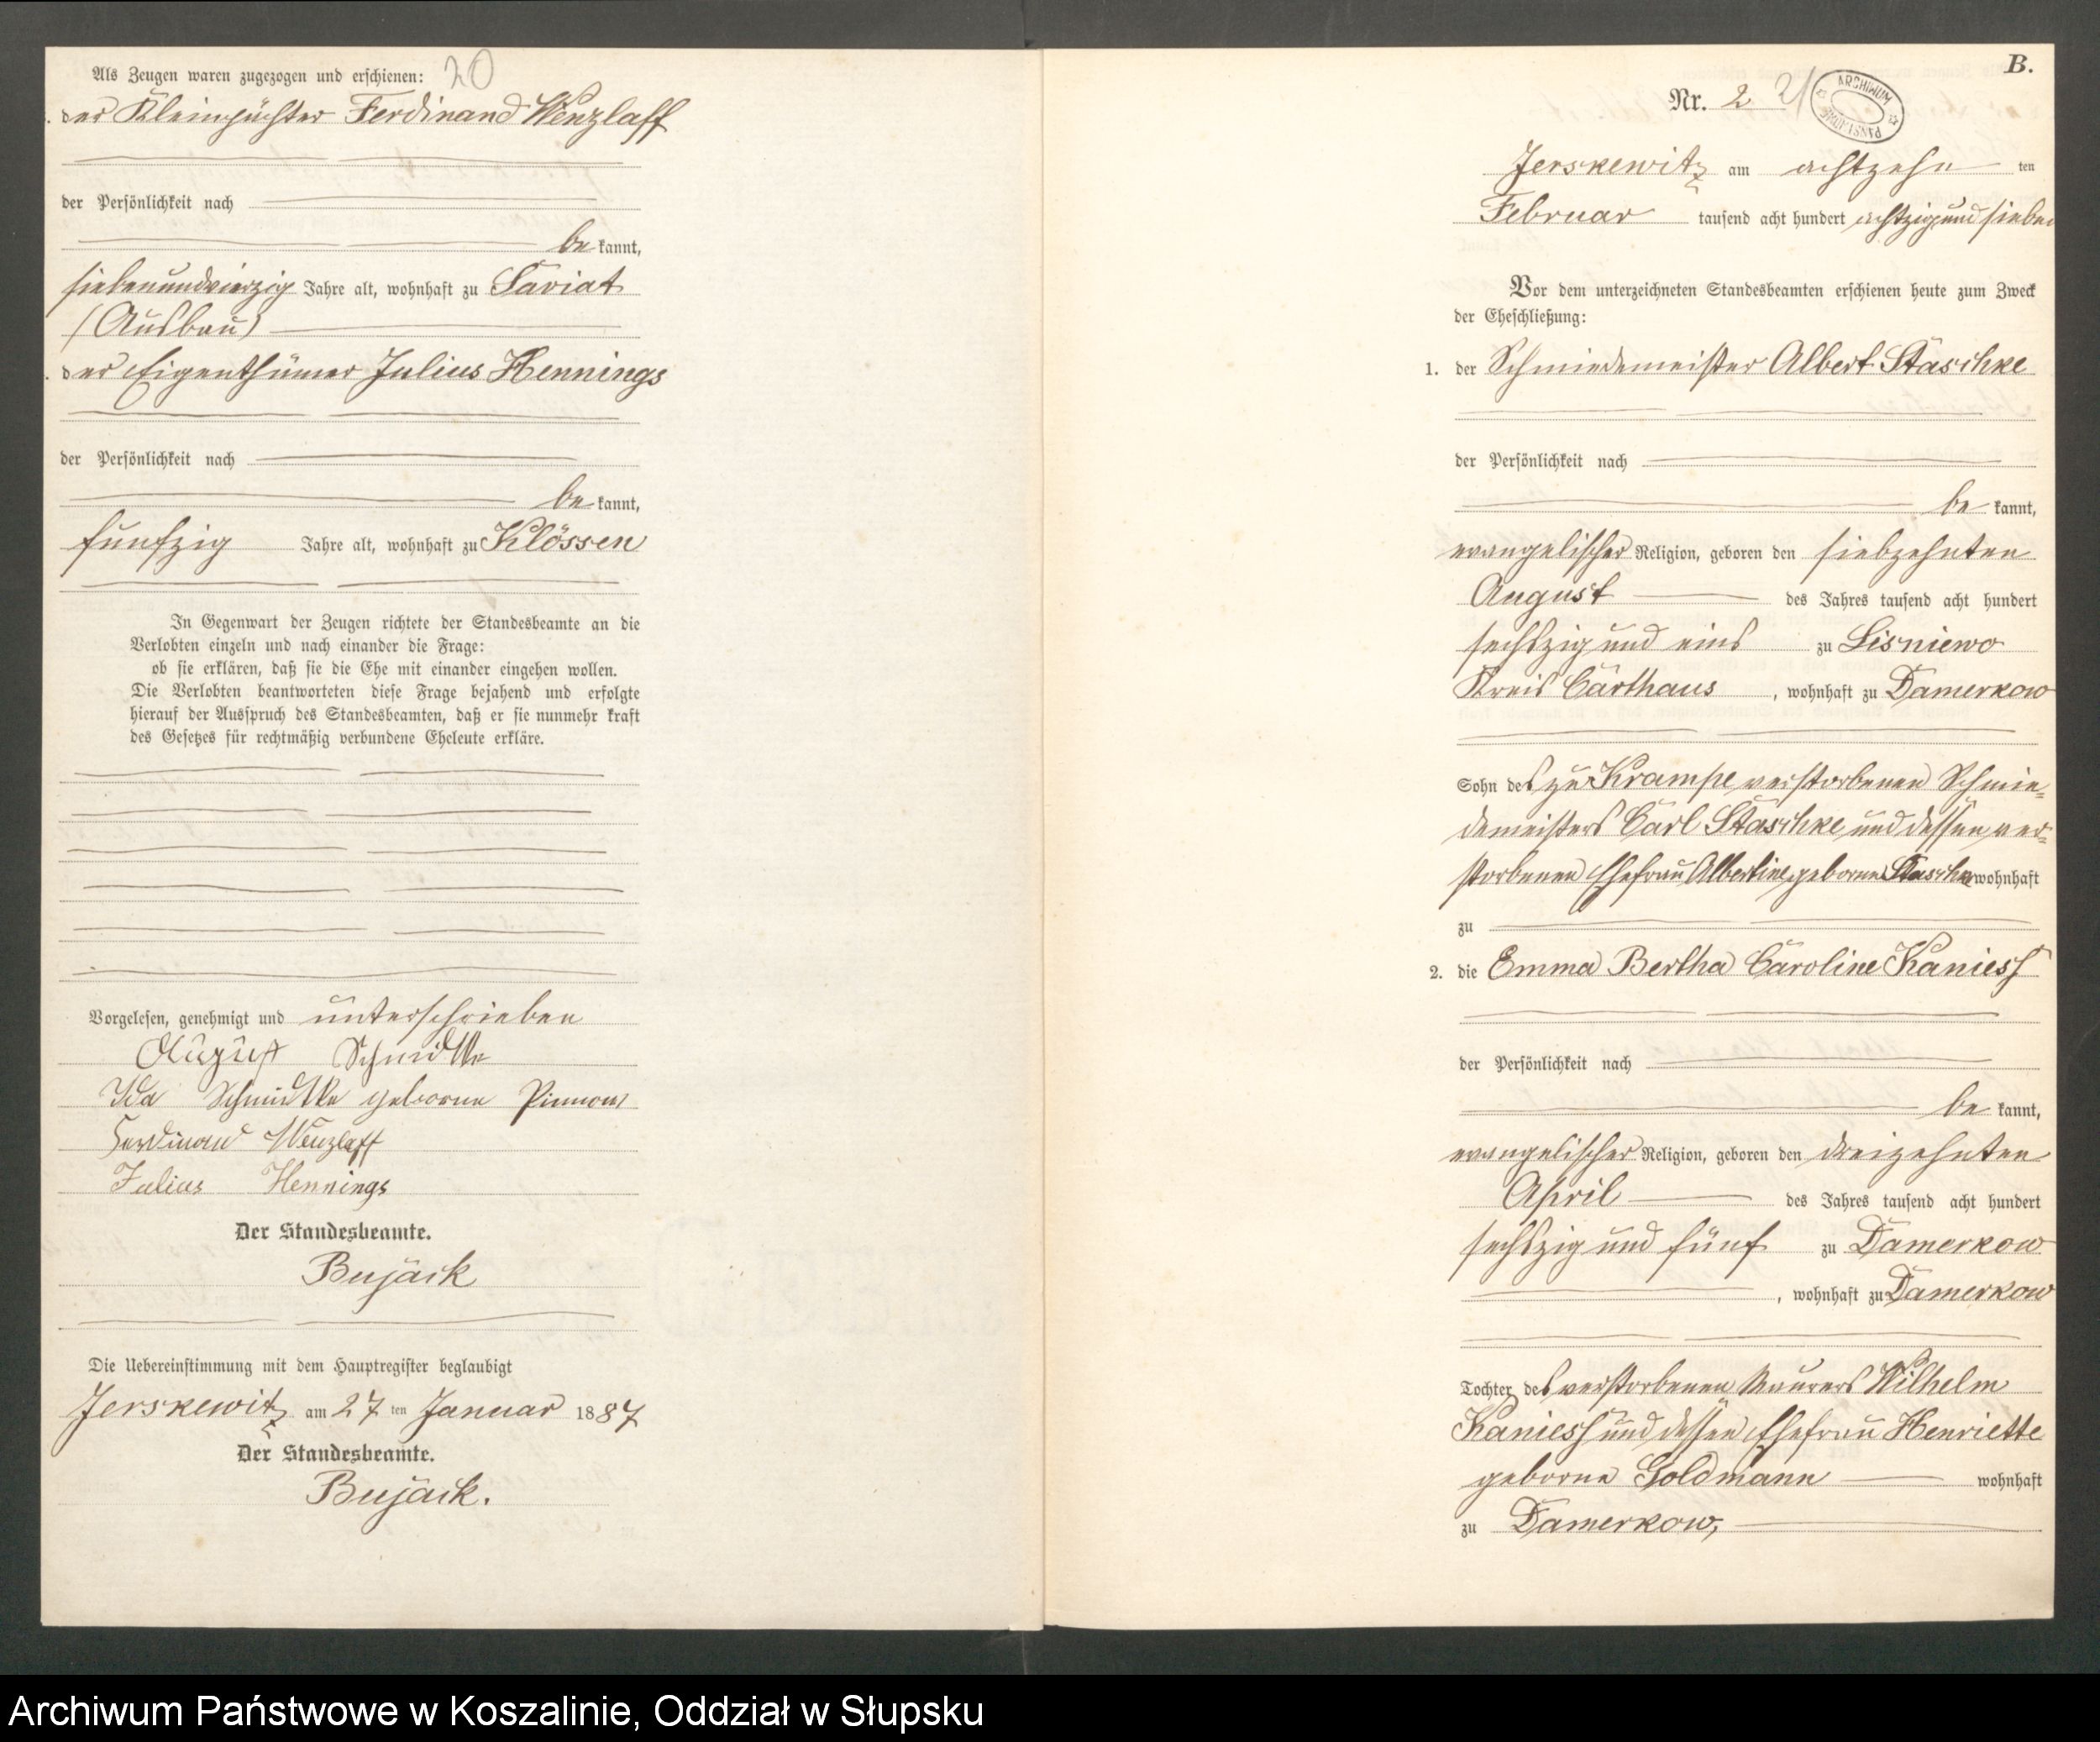 Als Zeugen waren zugezogen und erschienen: 20
der Kleinpächter Ferdinand Wenzlaff
der Persönlichkeit nach
be kannt,
siebenundvierzig Jahre alt, wohnhaft zu Saviat
(Ausbau)
der Eigenthümer Julius Hennings
der Persönlichkeit nach
be kannt,
funfzig Jahre alt, wohnhaft zu Klössen
In Gegenwart der Zeugen richtete der Standesbeamte an die
Verlobten einzeln und nach einander die Frage:
ob sie erklären, daß sie die Ehe mit einander eingehen wollen.
Die Verlobten beantworteten diese Frage bejahend und erfolgte
hierauf der Ausspruch des Standesbeamten, daß er sie nunmehr kraft
des Gesetzes für rechtmäßig verbundene Eheleute erkläre.
Vorgelesen, genehmigt und unterschrieben
August Schmidtke
Ida Schmidtke geborne Pinnow
Ferdinand Wenzlaff
Julius Hennings
Der Standesbeamte.
Bujack
Die Uebereinstimmung mit dem Hauptregister beglaubigt
Jerskewitz am 27 ten Januar 1887
Der Standesbeamte.
Bujack.
B.
Nr. 2 21
ARCHIWUM PAŃSTWOWE
Jerskewitz am achtzehn ten
Februar tausend acht hundert achtzig und sieben
Vor dem unterzeichneten Standesbeamten erschienen heute zum Zweck
der Eheschließung:
1. der Schmiedemeister Albert Staschke
der Persönlichkeit nach
be kannt,
evangelischer Religion, geboren den siebzehnten
August des Jahres tausend acht hundert
sechszig und eins zu Lisniewo
Kreis Carthaus, wohnhaft zu Damerkow
Sohn des zu Krampe verstorbenen Schmie=
demeisters Carl Staschke und dessen ver=
storbenen Ehefrau Albertine geborne Staschke wohnhaft
zu
2. die Emma Bertha Caroline Kaniess
der Persönlichkeit nach
be kannt,
evangelischer Religion, geboren den dreizehnten
April des Jahres tausend acht hundert
sechszig und fünf zu Damerkow
, wohnhaft zu Damerkow
Tochter des verstorbenen Maurers Wilhelm
Kaniess und dessen Ehefrau Henriette
geborne Goldmann wohnhaft
zu Damerkow,
Archiwum Państwowe w Koszalinie, Oddział w Słupsku